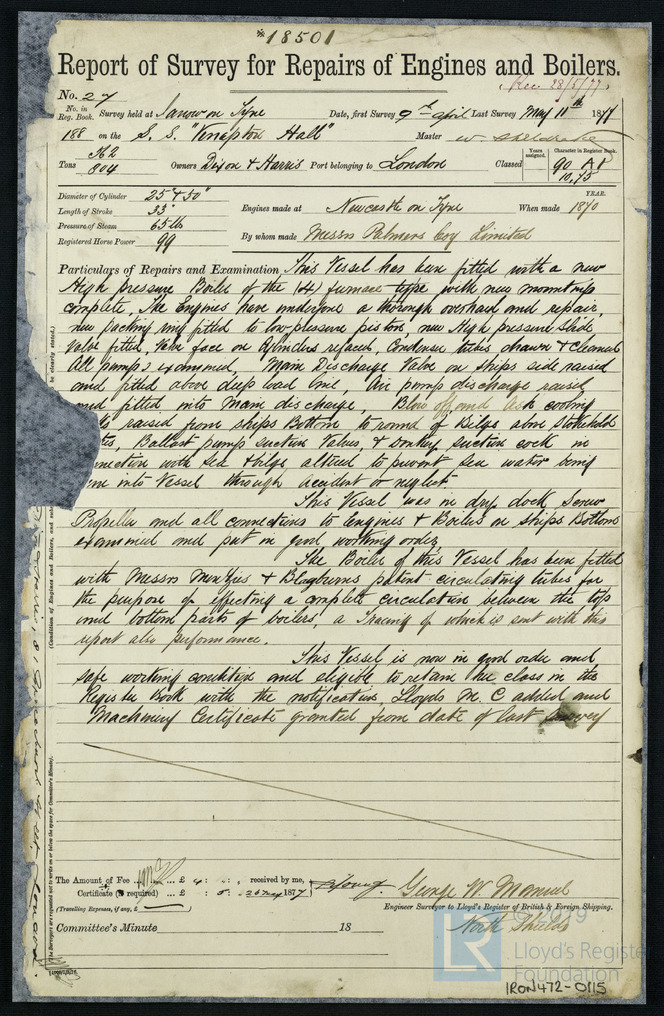 *18501
Report of Survey for Repairs of Engines and Boilers.
Rec. 28/5/77
No. 27
No. in Reg. Book. Survey held at Jarrow on Tyne Date, first Survey 9th April Last Survey May 11th 1877
188 on the S. S. "Knepton Hall" Master W.
Tons 562 / 804 Owners Dixon & Harris Port belonging to London Classed Years assigned. Character in Register Book. 90 A1 10,75
Diameter of Cylinder 25 & 50"
Length of Stroke 33"
Pressure of Steam 65 lb
Registered Horse Power 99
Engines made at Newcastle on Tyne When made YEAR. 1870
By whom made Messrs Palmers Coy Limited
Particulars of Repairs and Examination This Vessel has been fitted with a new
High pressure Boiler of the (4) furnace type with new mountings
complete, The Engines have undergone a thorough overhaul and repair,
new packing ring fitted to low pressure piston, new High pressure slide
valve fitted, Valve face on Cylinders refaced, Condenser tubes drawn & cleaned
All pumps examined, Main Discharge Valve on ships side raised
and fitted above deep load line, Air pump discharge raised
and fitted into Main discharge, Blow off and Ash cooling
raised from ships Bottom to round of Bilge above Stokehold
Ballast pump suction Valves, & donkey suction cock in
nnection with Sea & bilge altered to prevent Sea water being
into Vessel through accident or neglect.
This Vessel was in dry dock, Screw
Propeller and all connections to Engines & Boilers on ships Bottom
examined and put in good working order,
The Boiler of this Vessel has been fitted
with Messrs Menzies & Blagburns patent circulating tubes for
the purpose of effecting a complete circulation between the top
and bottom parts of boilers, a Tracing of which is sent with this
report also performance.
This Vessel is now in good order and
safe working condition and eligible to retain her class in the
Register Book with the notification Lloyds M. C added and
Machinery Certificate granted from date of last survey
The Amount of Fee ... £ 4 : : received by me,
Certificate (if required) ... £ : 5 : 26 May 1877
(Travelling Expenses, if any, £ )
George W. Manuel
Engineer Surveyor to Lloyd's Register of British & Foreign Shipping.
North Shields
Committee's Minute 18
be clearly stated.)
(Condition of Engines and Boilers, and
The Surveyors are requested not to write on or below the space for Committee's Minute.)
© 2019
LR
Lloyd's Register
Foundation
IRON472-0115